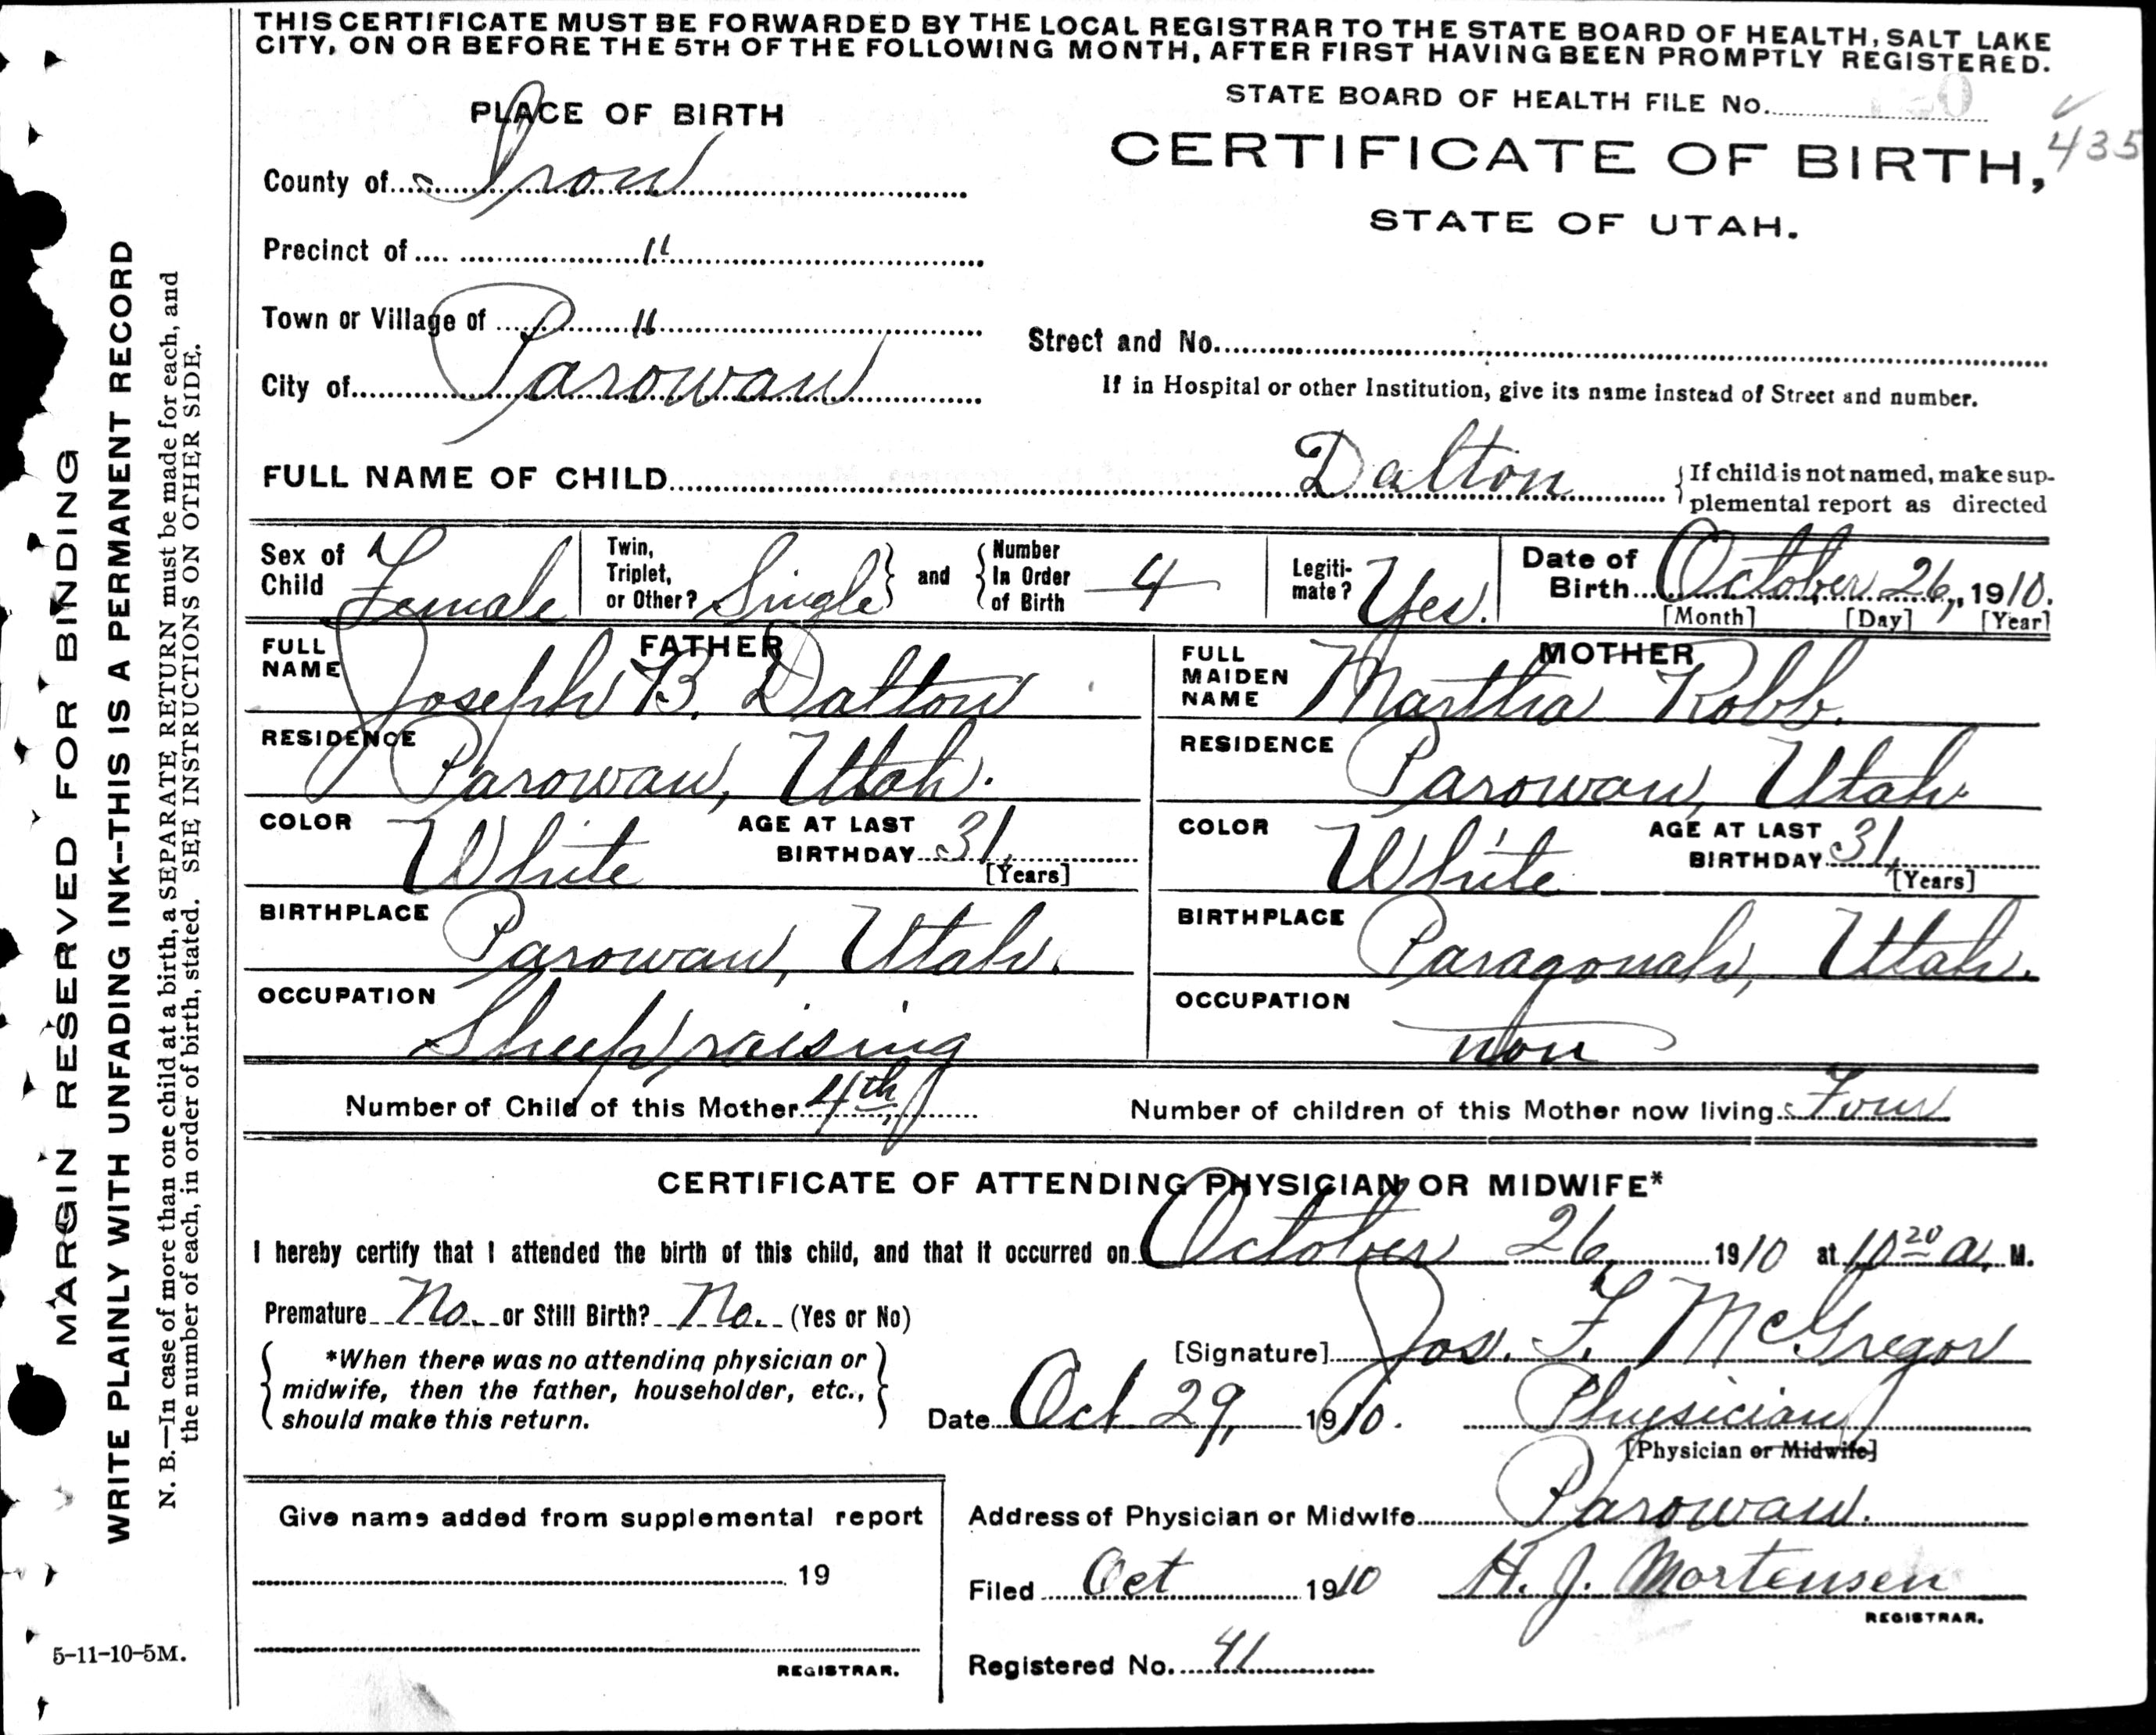 THIS CERTIFICATE MUST BE FORWARDED BY THE LOCAL REGISTRAR TO THE STATE BOARD OF HEALTH, SALT LAKE
CITY, ON OR BEFORE THE 5TH OF THE FOLLOWING MONTH, AFTER FIRST HAVING BEEN PROMPTLY REGISTERED.
STATE BOARD OF HEALTH FILE No.
435
PLACE OF BIRTH
CERTIFICATE OF BIRTH,
STATE OF UTAH.
County of Iron
Precinct of "
Town or Village of "
City of Parowan
Street and No.
If in Hospital or other Institution, give its name instead of Street and number.
FULL NAME OF CHILD Dalton
If child is not named, make sup-
plemental report as directed
Sex of Child Female
Twin, Triplet, or Other? Single and Number In Order of Birth 4
Legiti-mate? Yes.
Date of Birth October 26, 1910.
[Month] [Day] [Year]
FATHER
FULL NAME Joseph B. Dalton
RESIDENCE Parowan, Utah.
COLOR White AGE AT LAST BIRTHDAY 31 [Years]
BIRTHPLACE Parowan, Utah.
OCCUPATION Sheep raising
MOTHER
FULL MAIDEN NAME Martha Robb.
RESIDENCE Parowan, Utah
COLOR White AGE AT LAST BIRTHDAY 31 [Years]
BIRTHPLACE Paragonah, Utah.
OCCUPATION non
Number of Child of this Mother 4th Number of children of this Mother now living Four
CERTIFICATE OF ATTENDING PHYSICIAN OR MIDWIFE*
I hereby certify that I attended the birth of this child, and that it occurred on October 26 1910 at 10 20 a. M.
Premature No. or Still Birth? No. (Yes or No)
*When there was no attending physician or
midwife, then the father, householder, etc.,
should make this return.
[Signature] Jos. F. McGregor
Date Oct 29, 1910. Physician
[Physician or Midwife]
Give name added from supplemental report
19
REGISTRAR.
Address of Physician or Midwife Parowan.
Filed Oct 1910 H. J. Mortensen
REGISTRAR.
Registered No. 41
MARGIN RESERVED FOR BINDING
WRITE PLAINLY WITH UNFADING INK--THIS IS A PERMANENT RECORD
N. B.—In case of more than one child at a birth, a SEPARATE RETURN must be made for each, and
the number of each, in order of birth, stated. SEE INSTRUCTIONS ON OTHER SIDE.
5-11-10-5M.